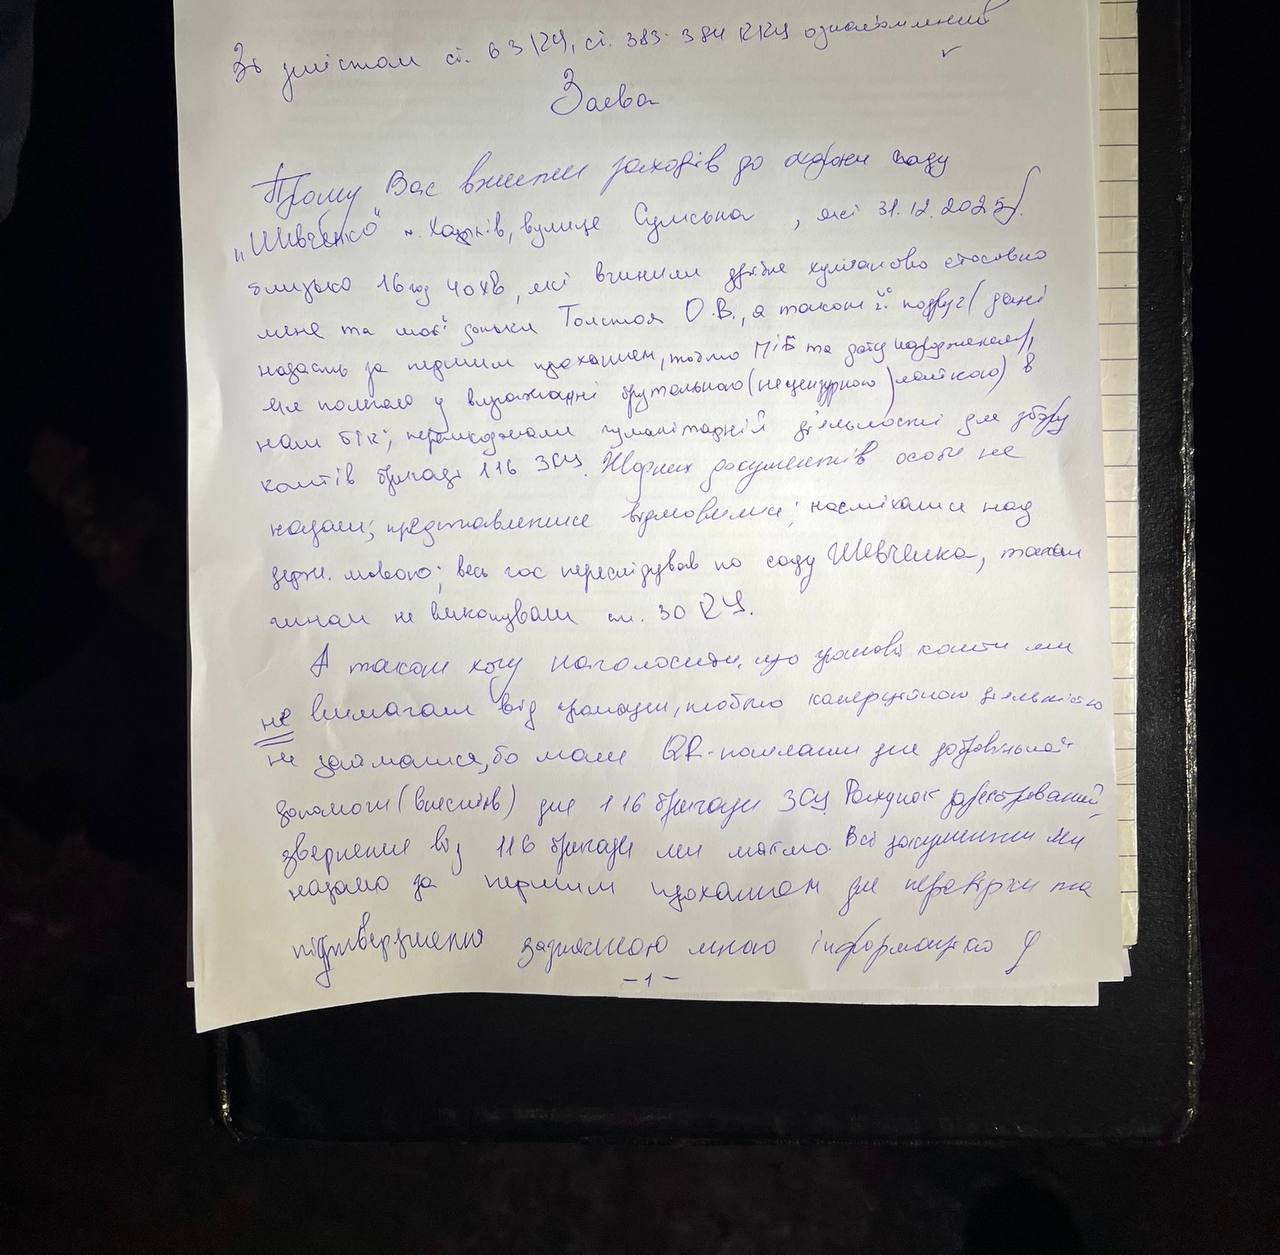 Зі змістом ст. 63 КУ, ст. 383-384 ККУ ознайомлений
Заява
Прошу Вас вжити заходів до охорони саду
"Шевченко" м. Харків, вулиця Сумська, які 31.12.2025р.
близько 16 год 40 хв, які вчинили дрібне хуліганство стосовно
мене та моєї доньки Толстая О.В., а також її подруг (дані
надасть за першим проханням, тобто ПІБ та дату народження),
що полягало у виражанні брутальною (нецензурною) лайкою) в
наш бік; перешкоджали гуманітарній діяльності для збору
коштів бригаді 116 ЗСУ. Жодних документів особи не
надали; представлятися відмовились; насміхалися над
держ. мовою; весь час переслідував по саду Шевченка, таким
чином не виконували ст. 30 КУ.
А також хочу наголосити, що грошові кошти ми
не вимагали від громадян, тобто комерційною діяльністю
не займалися, бо мали QR-посилання для добровільної
допомоги (внесків) для 116 бригади ЗСУ. Рахунок зареєстрований,
звернення від 116 бригади ми маємо. Всі документи ми
надамо за першим проханням для перевірки та
підтвердження зазначеною мною інформацією у
-1-